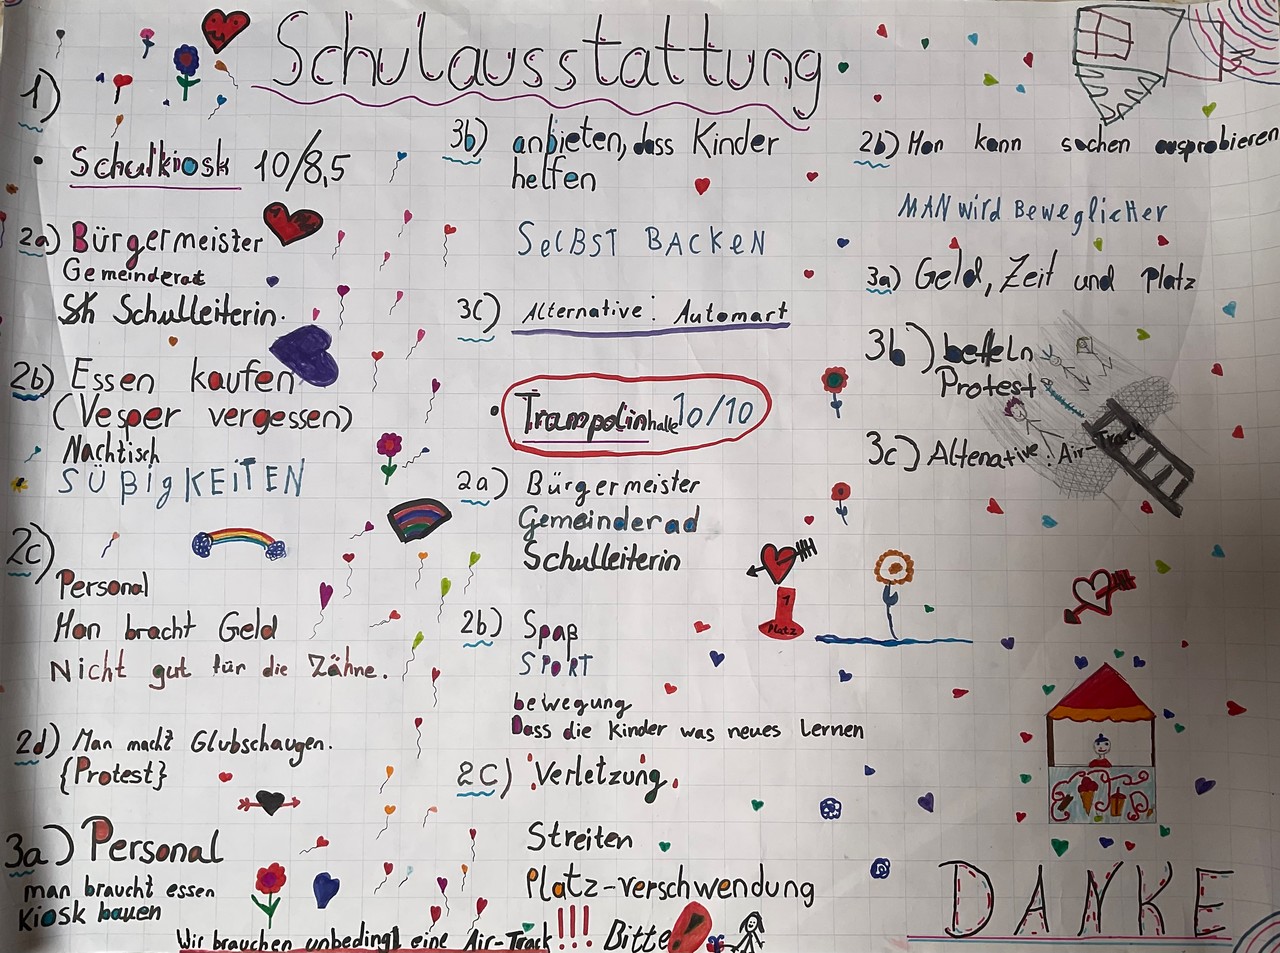 Schulausstattung
1)
• Schulkiosk 10/8,5
2a) Bürgermeister
Gemeinderat
Schulleiterin.
2b) Essen kaufen
(Vesper vergessen)
Nachtisch
SÜßigKEiTEN
2c)
Personal
Man bracht Geld
Nicht gut für die Zähne.
2d) Man macht Glubschaugen.
{Protest}
3a) Personal
man braucht essen
Kiosk bauen
3b) anbieten, dass Kinder
helfen
SELBST BACKEN
3c) Alternative: Automart
• Trampolinhalle 10/10
2a) Bürgermeister
Gemeinderad
Schulleiterin
2b) Spaß
SPORT
bewegung
Dass die Kinder was neues Lernen
2c) Verletzung.
Streiten
Platz-verschwendung
2b) Man kann sachen ausprobieren
MAN wird BEweglicHer
3a) Geld, Zeit und Platz
3b) betteln
Protest
3c) Altenative: Air-Track
1
Platz
Wir brauchen unbedingt eine Air-Track!!! Bitte!
DANKE